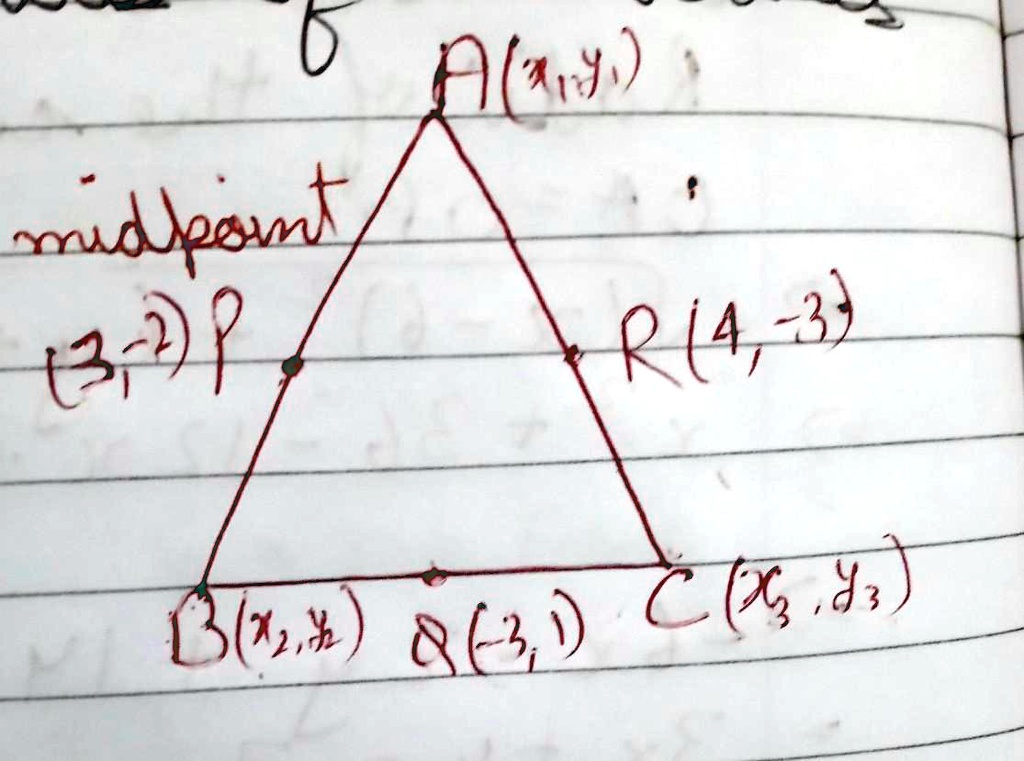 of
A(x₁,y₁)
midpoint
(3,-2) P
R(4,-3)
B(x₂,y₂) Q(-3,1) C(x₃,y₃)